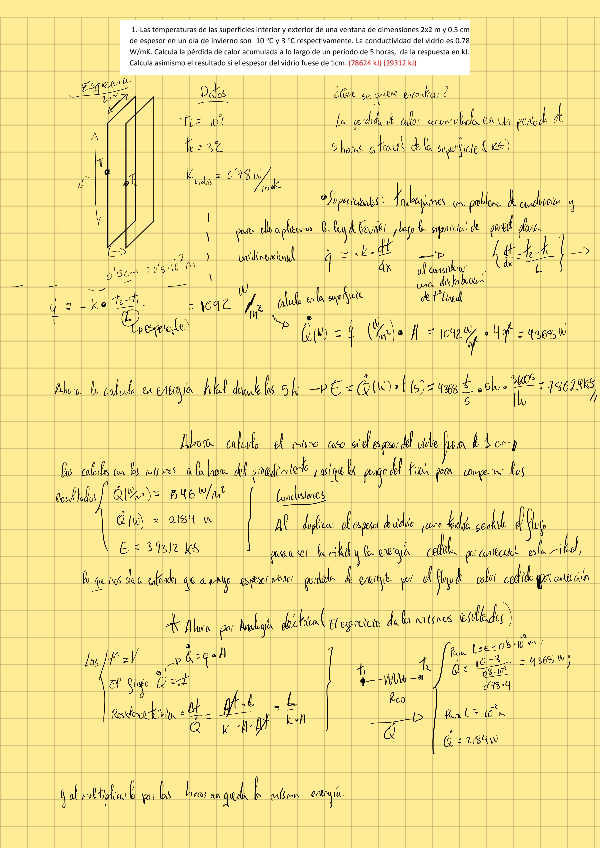 1.-Las temperaturas de las superficies interior y exterior de una ventana de dimensiones 2x2 m y 0.5 cm
de espesor en un día de invierno son 10 ºC y 3 ºC respectivamente. La conductividad del vidrio es 0.78
W/mK. Calcula la pérdida de calor acumulada a lo largo de un periodo de 5 horas, da la respuesta en kJ.
Calcula asimismo el resultado si el espesor del vidrio fuese de 1cm. (78624 kJ) (39312 kJ)
Esquema
Datos
¿Que se quiere encontrar?
A
Ti = 10º
La perdida de calor acumulada en un periodo de
Te = 3º
5 horas a través de la superficie (KJ)
K vidrio = 0'78 W/mºK
Suposiciones: trabajamos un problema de conducción y
para ello aplicamos la ley de Fourier, bajo la suposición de pared plana
unidimensional q̇ = -k · dt/dx → al considerar una distribución de tº lineal { dt/dx = t2-t1/L } →
q̇ = -k · t2-t1/L = 1092 W/m² calculo en la superficie
(L espesor(e))
Q̇(W) = q̇ (W/m²) · A = 1092 W/m² · 4m² = 4368 W
Ahora lo calculo en energía total durante los 5h → E = Q̇(W) · t(s) = 4368 J/s · 5h · 3600s/1h = 78624 KJ
Ahora calculo el mismo caso si el espesor del vidrio fuera de 1 cm
los calculos son los mismos a la hora del procedimiento, asique los pongo del tirón para comparar los
resultados { Q̇(W/m²) = 546 W/m²
Q̇(W) = 2184 W
E = 39312 KJ
Conclusiones
Al duplicar el espesor de vidrio, el flujo
pasa a ser la mitad y la energía cedida por consecuente es la mitad,
lo que nos da a entender que a mayor espesor menor perdida de energía por el flujo de calor cedido por conducción
* Ahora por Analogía eléctrica (El ejercicio da los mismos resultados)
Los { tº = V
El flujo Q̇ = I → Q̇ = q · A
Resistencia térmica = Δt/Q̇ = Δt · L / K · A · Δt = L / K · A
t1 t2
Rco
Q̇
Para L = e = 0'5 · 10⁻² m :
Q̇ = 10 - 3 / 0'5·10⁻² / 0'78·4 = 4368 W ;
Para L = 10⁻² m
Q̇ = 2184 W
Y al multiplicarlo por las horas nos queda la misma energía.